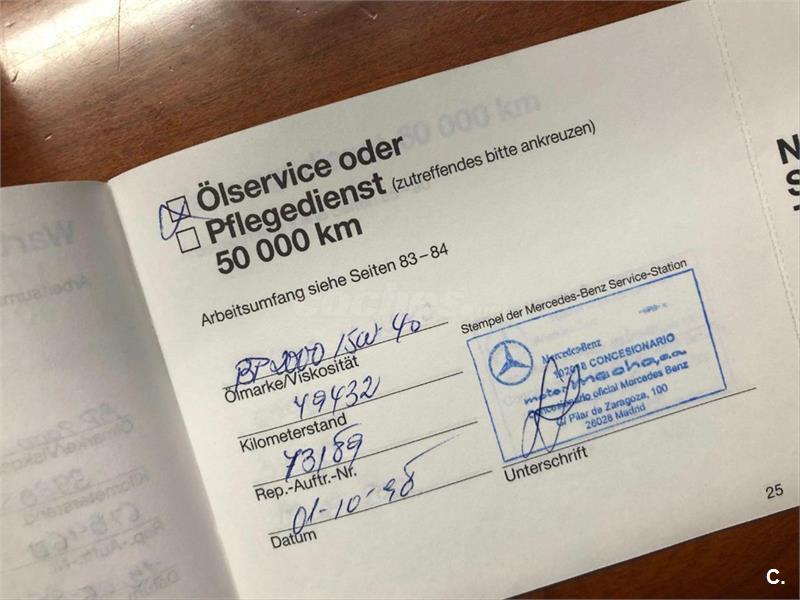 Ölservice oder
Pflegedienst (zutreffendes bitte ankreuzen)
50 000 km
Arbeitsumfang siehe Seiten 83–84
BP 2000 15W-40
Ölmarke/Viskosität
49432
Kilometerstand
73189
Rep.-Auftr.-Nr.
01-10-98
Datum
Stempel der Mercedes-Benz Service-Station
Mercedes-Benz
CONCESIONARIO
concesionario oficial Mercedes Benz
C/ Pilar de Zaragoza, 100
28028 Madrid
Unterschrift
25
N
S
C.